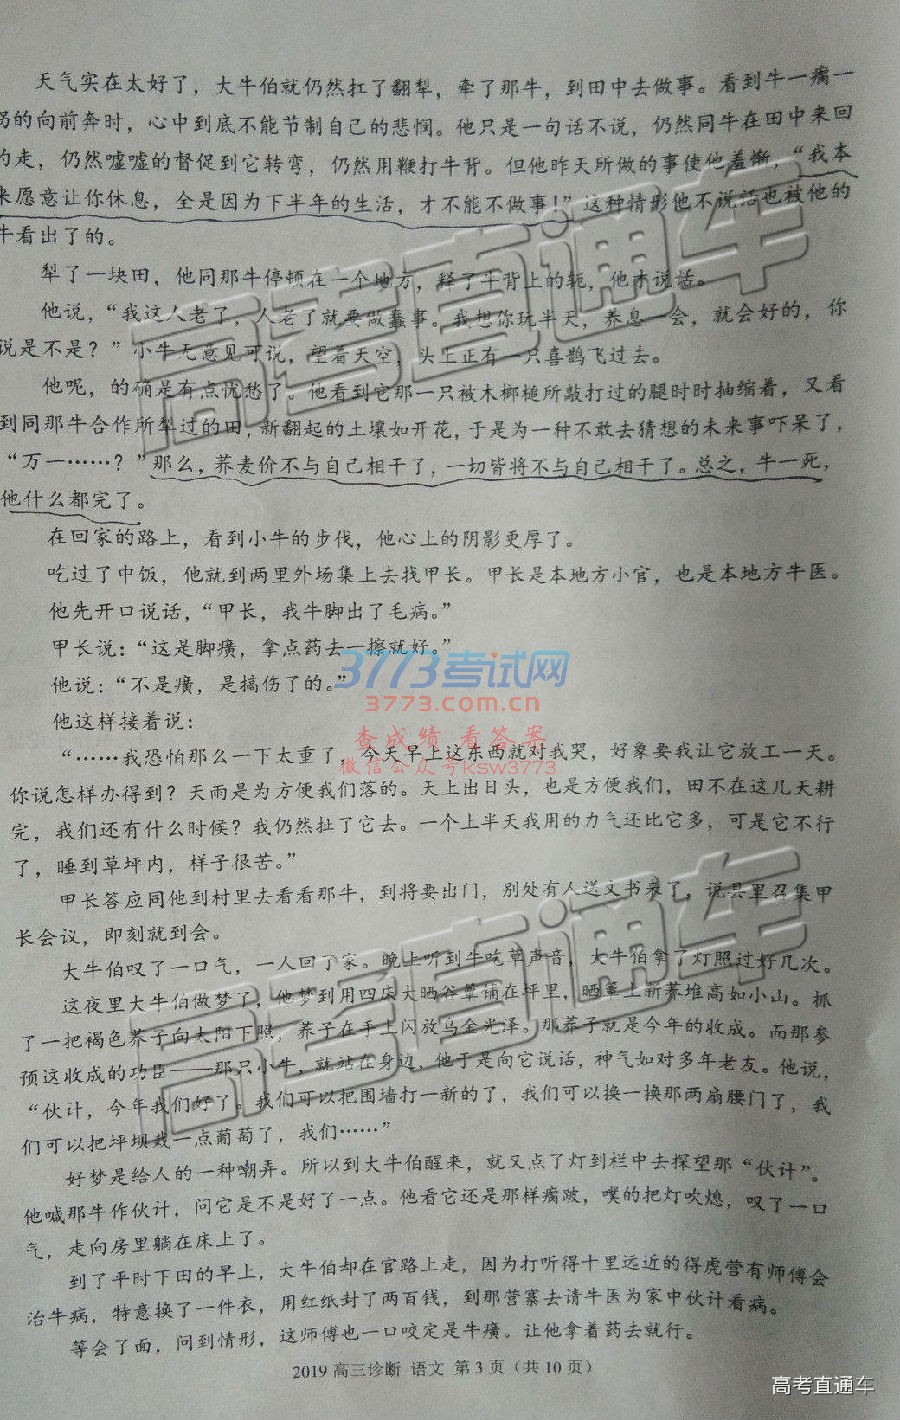 天气实在太好了，大牛伯就仍然扛了翻犁，牵了那牛，到田中去做事。看到牛一瘸一
拐的向前奔时，心中到底不能节制自己的悲悯。他只是一句话不说，仍然同牛在田中来回
的走，仍然嘘嘘的督促到它转弯，仍然用鞭打牛背。但他昨天所做的事使他羞惭，“我本
来愿意让你休息，全是因为下半年的生活，才不能不做事！”这种情形他不说话也被他的
牛看出了的。
犁了一块田，他同那牛停顿在一个地方，释了牛背上的轭，他才说话。
他说，“我这人老了，人老了就要做蠢事。我想你玩半天，养息一会，就会好的，你
说是不是？”小牛无意见可说，望着天空，头上正有一只喜鹊飞过去。
他呢，的确是有点忧愁了。他看到它那一只被木榔槌所敲打过的腿时时抽缩着，又看
到同那牛合作所犁过的田，新翻起的土壤如开花，于是为一种不敢去猜想的未来事吓呆了，
“万一……？”那么，荞麦价不与自己相干了，一切皆将不与自己相干了。总之，牛一死，
他什么都完了。
在回家的路上，看到小牛的步伐，他心上的阴影更厚了。
吃过了中饭，他就到两里外场集上去找甲长。甲长是本地方小官，也是本地方牛医。
他先开口说话，“甲长，我牛脚出了毛病。”
甲长说：“这是脚癀，拿点药去一擦就好。”
他说：“不是癀，是搞伤了的。”
他这样接着说：
“……我恐怕那么一下太重了，今天早上这东西就对我哭，好象要我让它放工一天。
你说怎样办得到？天雨是为方便我们落的。天上出日头，也是方便我们，田不在这几天耕
完，我们还有什么时候？我仍然扯了它去。一个上半天我用的力气还比它多，可是它不行
了，睡到草坪内，样子很苦。”
甲长答应同他到村里去看看那牛，到将要出门，别处有人送文书来了，说县里召集甲
长会议，即刻就到会。
大牛伯叹了一口气，一人回了家。晚上听到牛吃草声音，大牛伯拿了灯照过好几次。
这夜里大牛伯做梦了，他梦到用四床大晒谷簟铺在坪里，晒簟上新荞堆高如小山。抓
了一把褐色荞子向太阳下照，荞子在手上闪放乌金光泽。那荞子就是今年的收成。而那参
预这收成的功臣——那只小牛，就站在身边，他于是向它说话，神气如对多年老友。他说，
“伙计，今年我们好了。我们可以把围墙打一新的了，我们可以换一换那两扇腰门了，我
们可以把坪坝栽一点葡萄了，我们……”
好梦是给人的一种嘲弄。所以到大牛伯醒来，就又点了灯到栏中去探望那“伙计”。
他喊那牛作伙计，问它是不是好了一点。他看它还是那样瘸跛，噗的把灯吹熄，叹了一口
气，走向房里躺在床上了。
到了平时下田的早上，大牛伯却在官路上走，因为打听得十里远近的得虎营有师傅会
治牛病，特意换了一件衣，用红纸封了两百钱，到那营寨去请牛医为家中伙计看病。
等会了面，问到情形，这师傅也一口咬定是牛癀。让他拿着药去就行。
2019 高三诊断 语文 第 3 页（共 10 页）
高考直通车
高考直通车
3773考试网
3773.com.cn
查成绩 看答案
微信公众号ksw3773
高考直通车